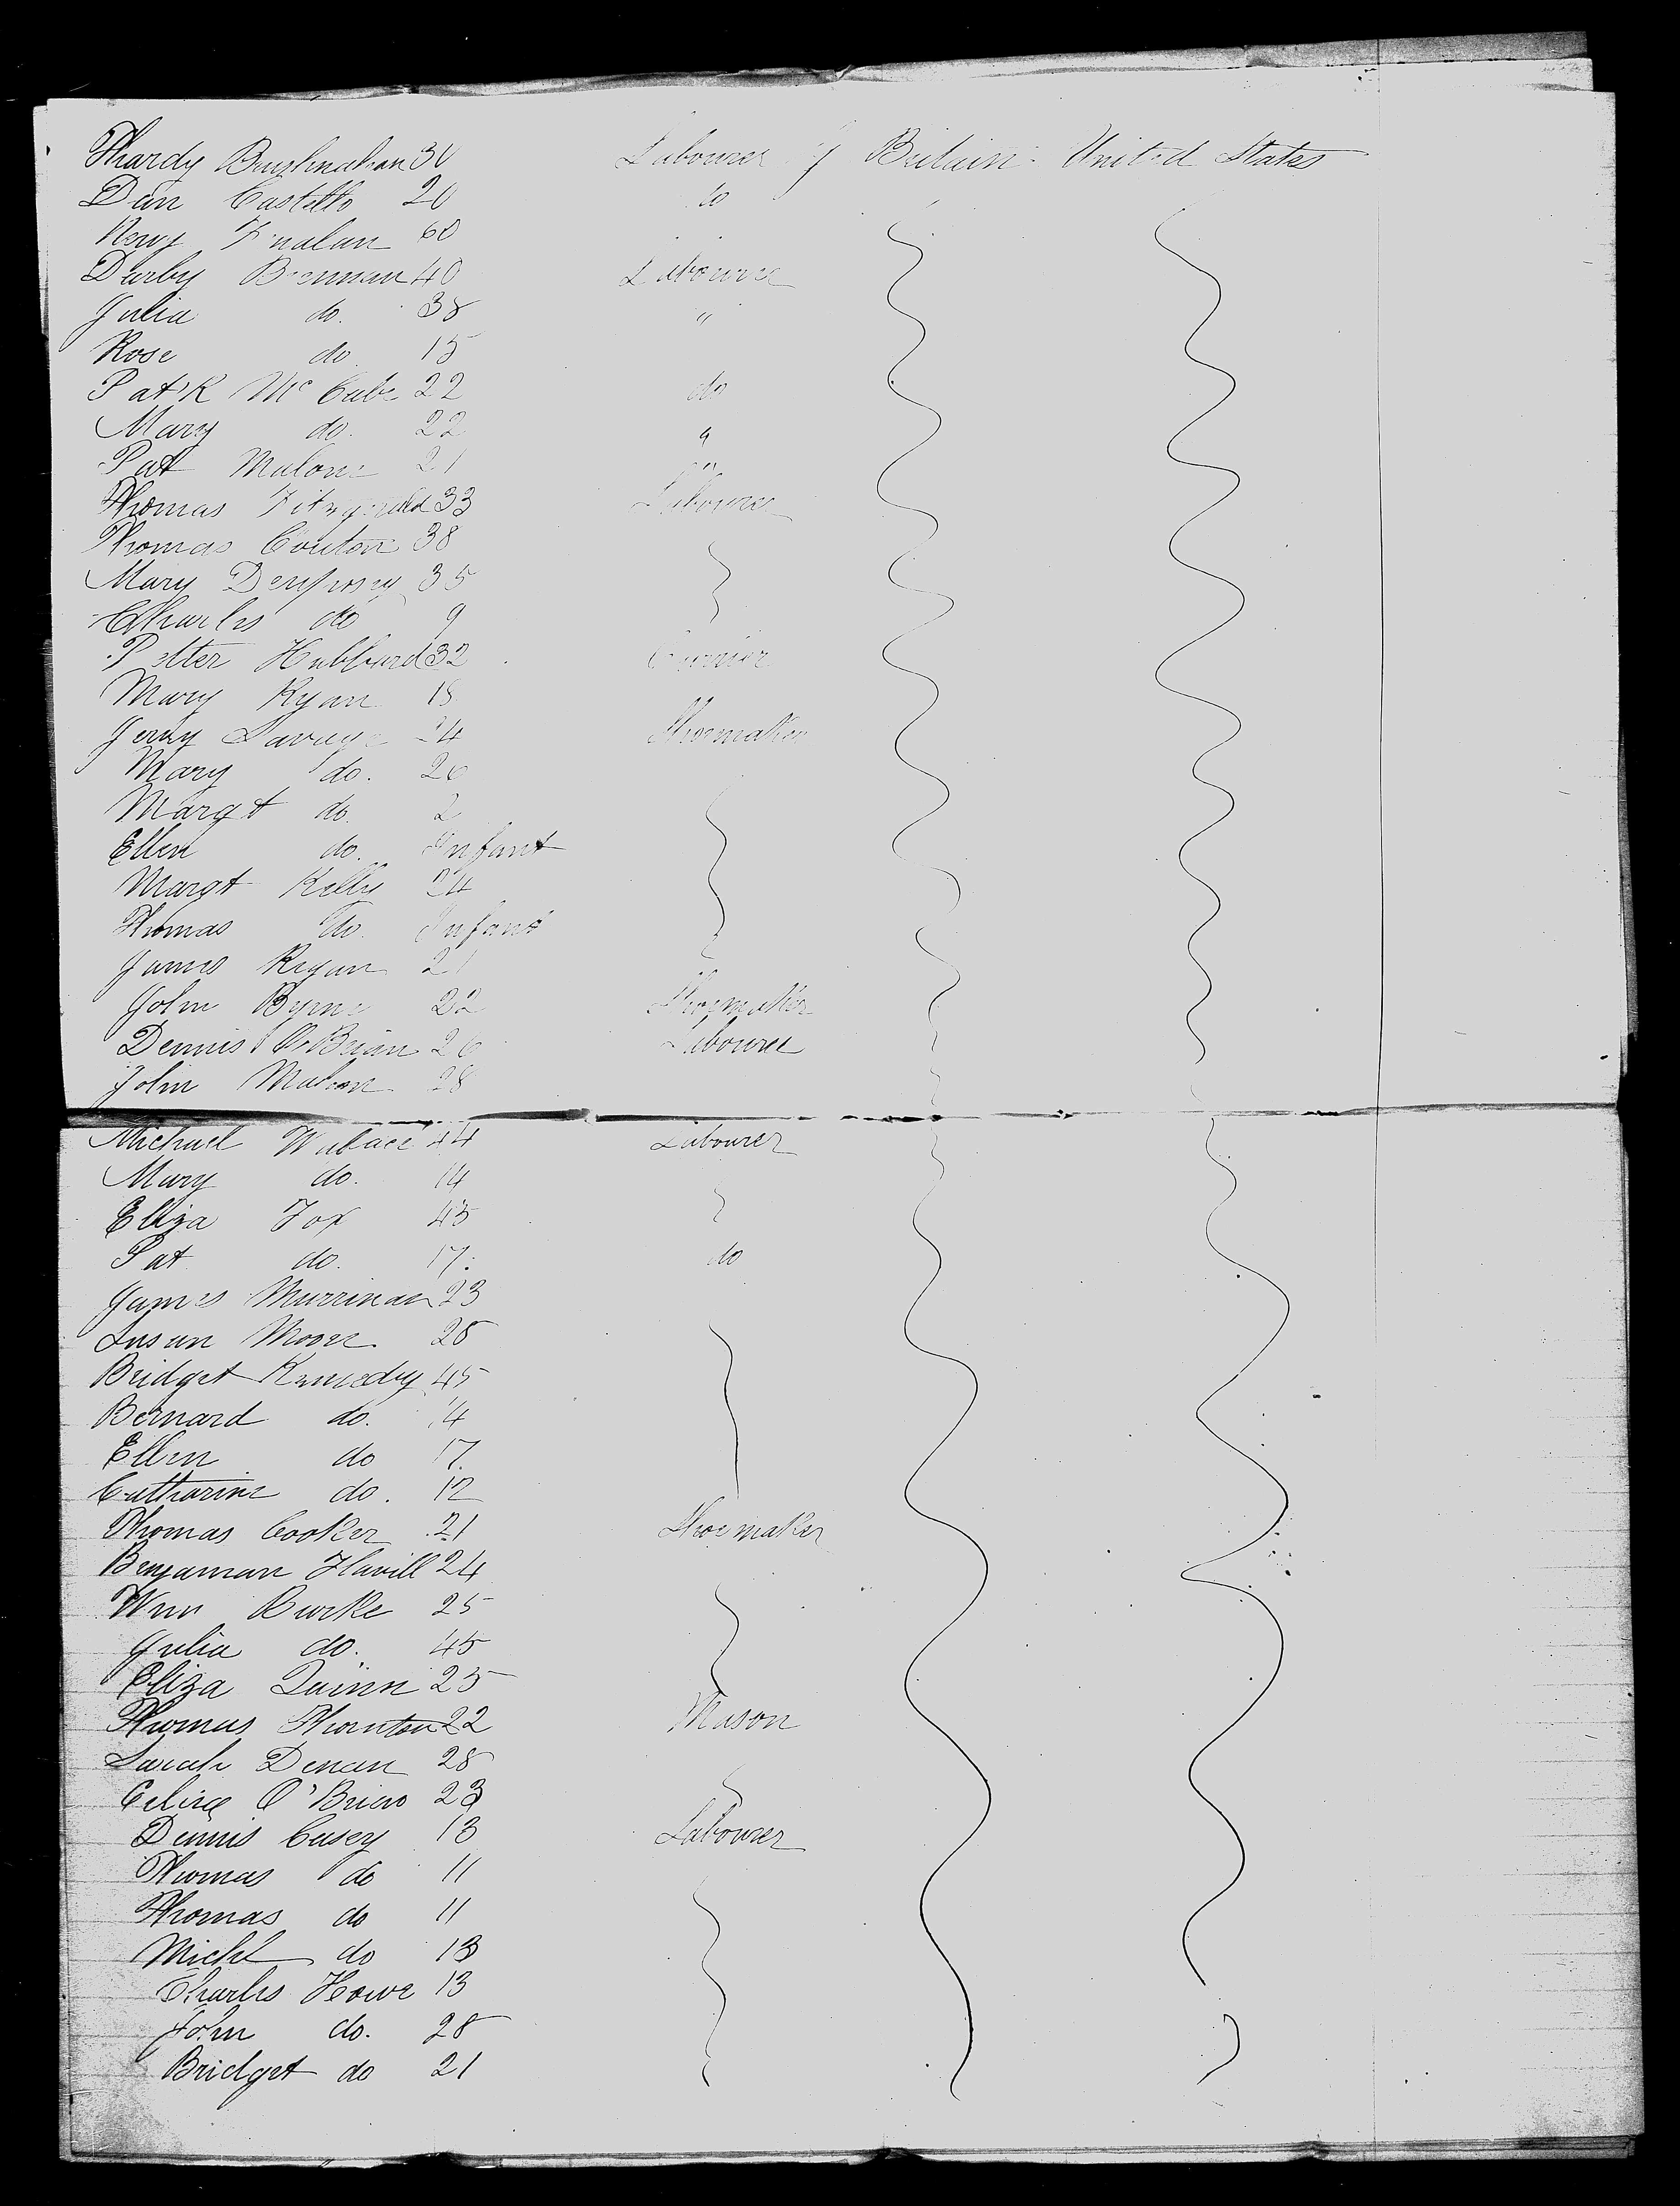 Thardy Brushnahan 30 Labourer Britain United States
Dan Costello 20 do
60
Darby Brennan 40 Labourer
Julia do. 38 "
Rose do 15
Patk McCabe 22 do
Mary do. 22 "
Pat Malone 21 "
Thomas Fitzgerald 33 Labourer
Thomas Couton 38
Mary Dempsey 35
Charles do 9
Petter Hubbard 32 Currier
Mary Ryan 18
Jerry Savage 24 Shoemaker
Mary do. 26
Margt do. 2
Ellen do. Infant
Margt Kelly 24
Thomas do. Infant
James Ryan 21
John Byrne 22 Shoemaker
Dennis O'Brian 26 Labourer
John Mahon 28
Michael Wallace 44 Labourer
Mary do. 14
Eliza Fox 45
Pat do. 17. do
James Murrinan 23
Susan Moore 28
Bridget Kennedy 45
Bernard do. 14
Ellen do 17.
Catharine do. 12
Thomas Cooker 21 Shoemaker
Benjaman Flavill 24
Wm Burke 25
Julia do. 45
Eliza Quinn 25
Thomas Thornton 22 Mason
Sarah Denan 28
O'Brien 23
Dennis Casey 13 Labourer
Thomas do 11
Thomas do 11
Michl do 13
Charles Howe 13
John do. 28
Bridget do 21